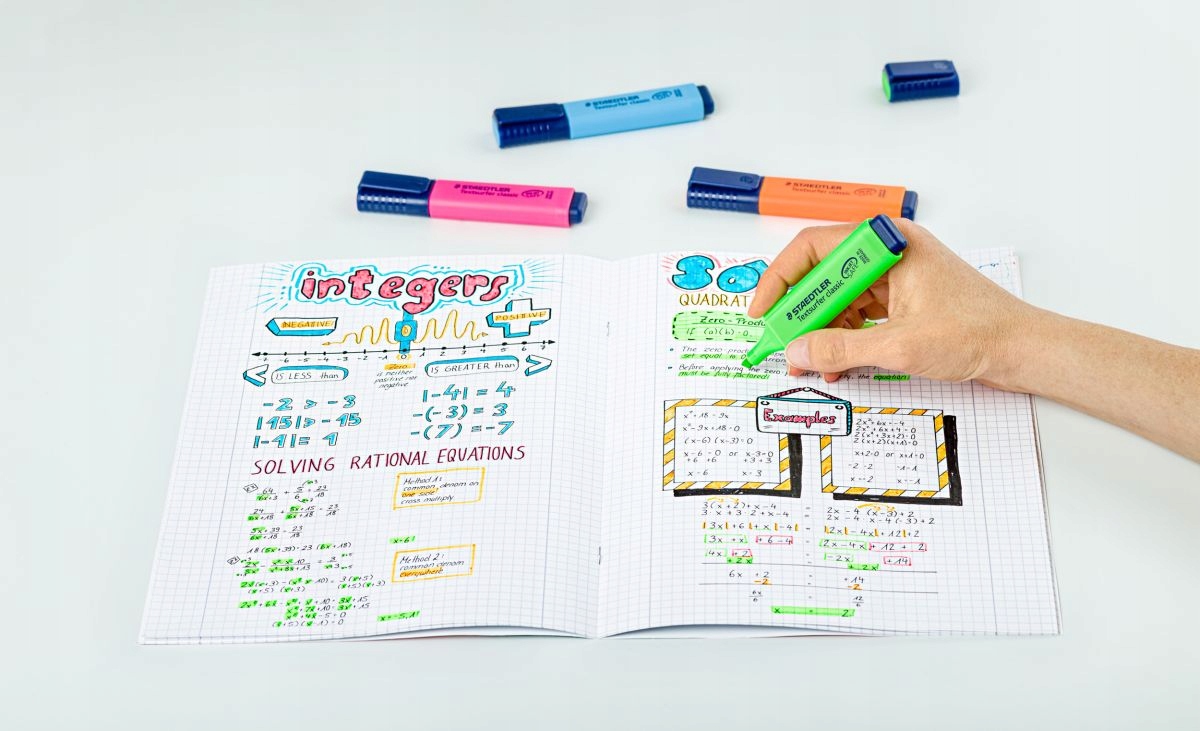 STAEDTLER
Textsurfer classic
STAEDTLER
Textsurfer classic
STAEDTLER
Textsurfer classic
STAEDTLER
Textsurfer classic
INKJET SAFE
integers
NEGATIVE
POSITIVE
-6 -5 -4 -3 -2 -1 0 1 2 3 4 5 6 7
IS LESS than
Zero
is neither
positive nor
negative
IS GREATER than
-2 > -3
|15| > -15
|-4| = 4
|-4| = 4
-(-3) = 3
-(7) = -7
SOLVING RATIONAL EQUATIONS
Method 1:
common denom on
one side
cross multiply
x=6
18(5x+39)=23(6x+18)
Method 2:
common denom
everywhere
(x+5)(x-1)=0
x=-5,1
So
QUADRAT
Zero-Produ
If (a)(b)=0,
The zero produ
set equal to 0
Before applying the zero
must be fully factored!
the equation
Examples
x²+18=9x
x²-9x+18=0
(x-6)(x-3)=0
x-6=0 or x-3=0
+6 +6 +3+3
x=6 x=3
2x²+6x=-4
2x²+6x+4=0
2(x²+3x+2)=0
2(x+2)(x+1)=0
x+2=0 or x+1=0
-2 -2 -1-1
x=-2 x=-1
3(x+2)+x-4 = 2x-4(x-3)+2
3x+3·2+x-4 = 2x-4·x-4(-3)+2
3x+6+x-4 = 2x-4x+12+2
3x+x +6-4 = 2x-4x +12+2
4x +2 = -2x +14
+2x +2x
6x +2 = +14
-2 -2
6x/6 12/6
x = 2